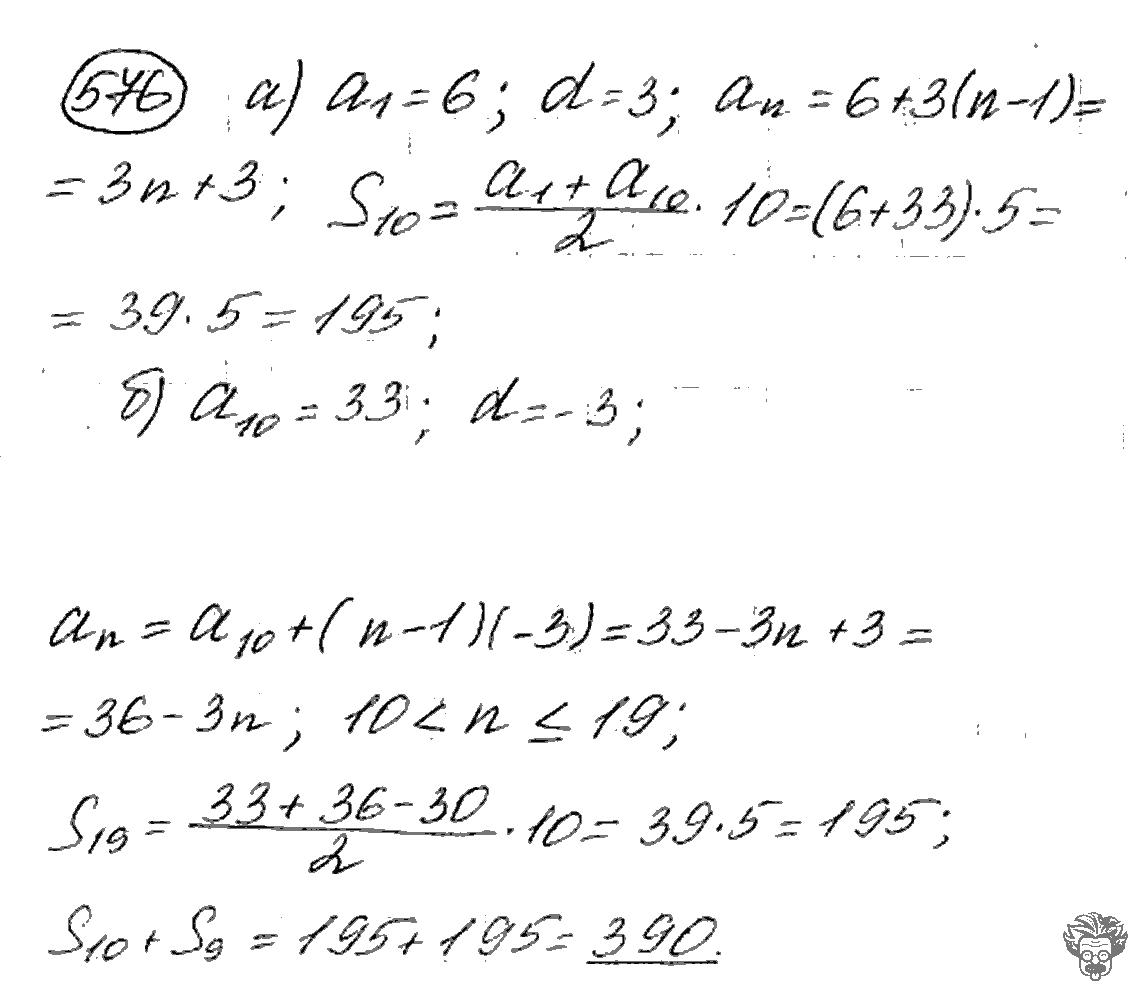 576 а) a₁ = 6; d = 3; aₙ = 6+3(n-1)=
= 3n+3; S₁₀ = (a₁ + a₁₀)/2 · 10 = (6+33)·5 =
= 39·5 = 195;
б) a₁₀ = 33; d = -3;
aₙ = a₁₀ + (n-1)(-3) = 33-3n+3 =
= 36-3n; 10 < n ≤ 19;
S₁₉ = (33+36-30)/2 · 10 = 39·5 = 195;
S₁₀ + S₉ = 195+195 = 390.